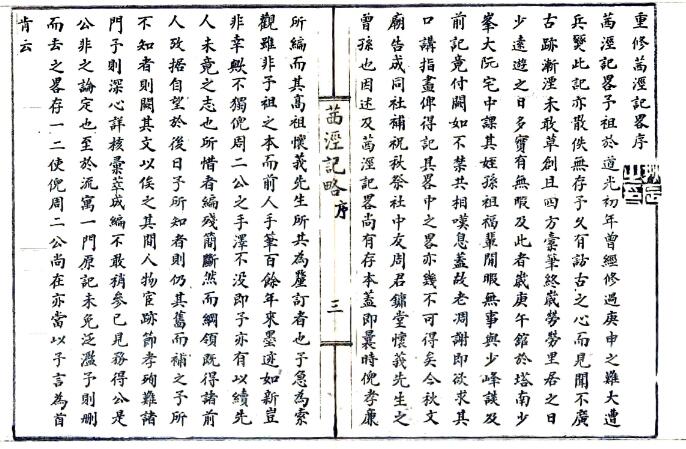 重修茜涇記畧序
茜涇記畧予祖於道光初年曾經修過庚申之難大遭
兵燹此記亦散佚無存予久有詁古之心而見聞不廣
古跡漸湮未敢草創且四方橐筆終歲勞勞里居之日
少遠遊之日多實有無暇及此者歲庚午館於塔南少
峯大阮宅中課其姪孫祖福輩閒暇無事與少峰談及
前記竟付闕如不禁共相嘆息蓋故老凋謝即欲求其
口講指畫俾得記其畧中之畧亦幾不可得矣今秋文
廟告成同社補祝秋祭社中友周君鏞堂懷義先生之
曾孫也因述及茜涇記畧尚有存本蓋即曩時倪孝廉
茜涇記略 序
三
所編而其高祖懷義先生所共為釐訂者也予急為索
觀雖非予祖之本而前人手筆百餘年來墨迹如新豈
非幸歟不獨倪周二公之手澤不没即予亦有以續先
人未竟之志也所惜者編殘簡斷然而綱領既得諸前
人攷据自望於後日予所知者則仍其舊而補之予所
不知者則闕其文以俟之其間人物宦跡節孝殉難諸
門予則深心詳核彚萃成編不敢稍參已見務得公是
公非之論定也至於流寓一門原記未免泛濫予則刪
而去之畧存一二使倪周二公尚在亦當以予言為首
肯云